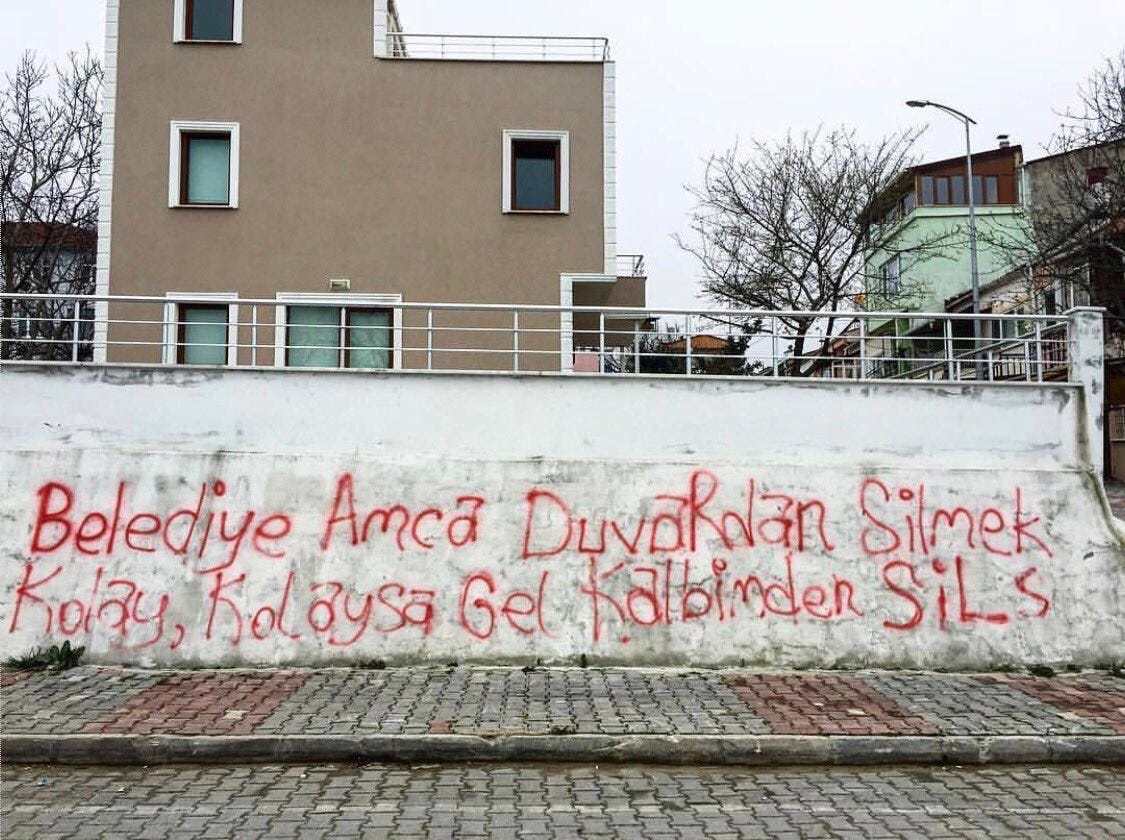 Belediye Amca DuvaRdan Silmek
Kolay, Kolaysa Gel Kalbimden SiLs